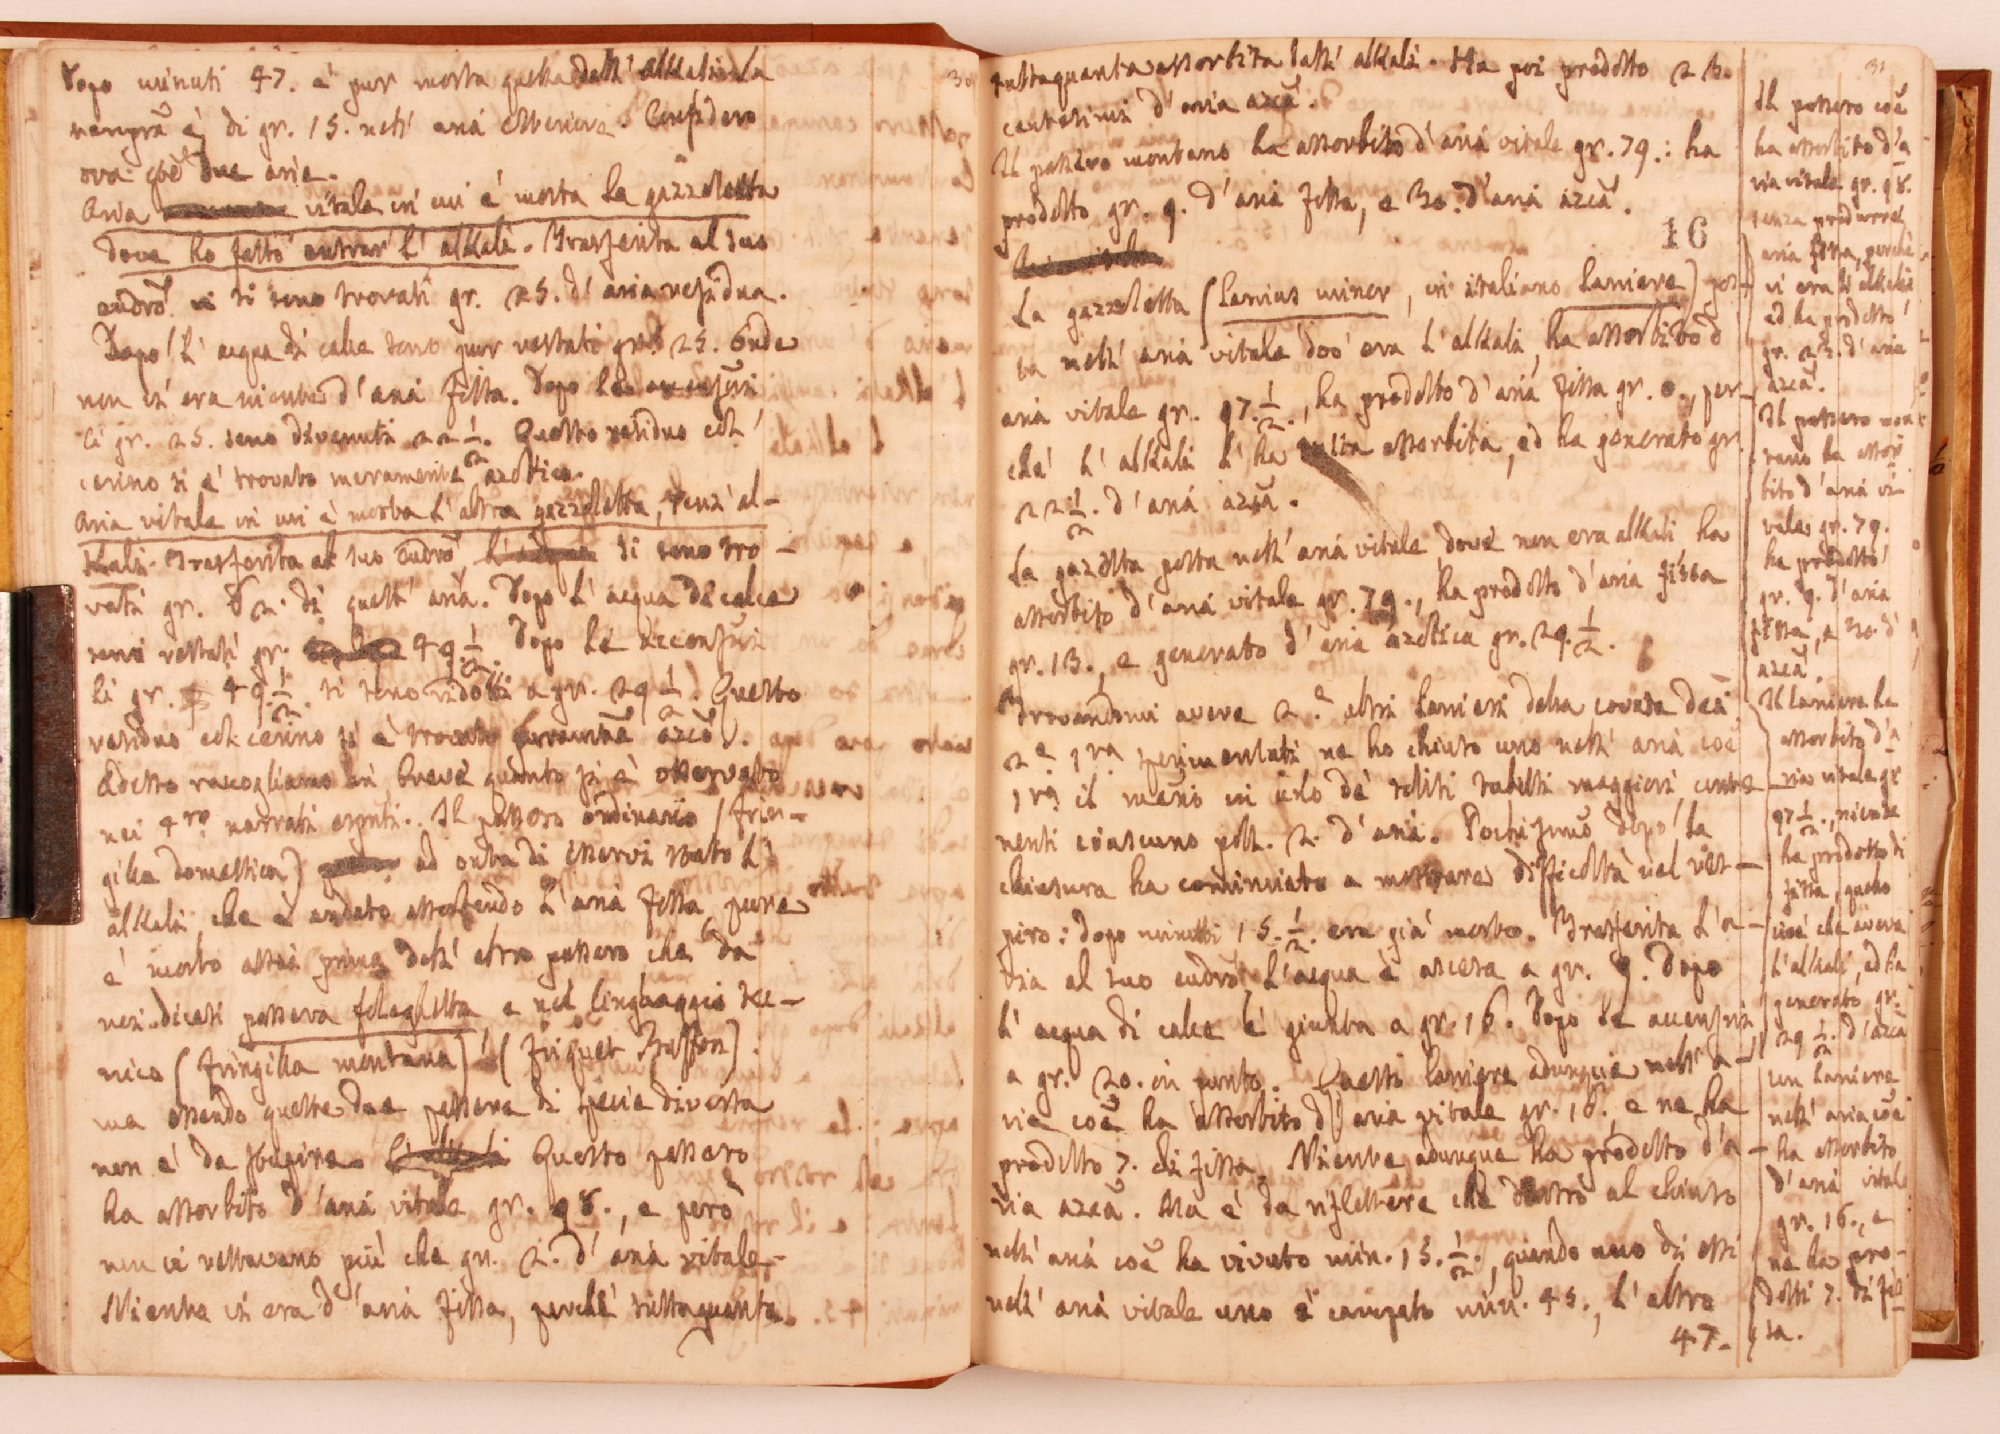 30
Dopo minuti 47. è pur morta quella dell' alkali. La
è di gr. 15. nell' aria esteriore. Considero
ora que' due aria.
Aria vitale in cui è morta la gazzoletta
dove ho fatto entrar l' alkali. Trasferita al suo
eudro. vi si sono trovati gr. 25. d' aria residua.
Dopo l' acqua di calce sono pur restati gr. 25. Onde
non vi era niente d' aria fissa. Dopo le accensioni
li gr. 25. sono divenuti 22 1/2. Questo residuo coll'
cerino si è trovato meramente azotico.
Aria vitale in cui è morta l' altra gazzoletta, senz' al-
kali. Trasferita al suo eudro. si sono tro-
vati gr. 52. di quell' aria. Dopo l' acqua di calce
sono restati gr. 49. 1/2. Dopo le accensioni
li gr. 49. 1/2. si sono ridotti a gr. 29 1/2. Questo
residuo col cerino si è trovato azoã.
Adesso raccogliamo in breve quanto si è osservato
nei 4ro narrati esp.ti. Il passero ordinario (frin-
gilla domestica) ad onta di esservi stato l'
alkali, che è andato assorbendo l' aria fissa, pure
è morto assai prima dell' altro passero che da
noi dicesi passera felaghetta e nel linguaggio Li-
nico (fringilla montana) (friquet Buffon).
ma essendo queste due passere di specie diversa
non è da stupire. Questo passero
ha assorbito d' aria vitale gr. 98., e però
non vi restavano più che gr. 2. d' aria vitale.
Niente vi era d' aria fissa, perchè tuttaquanta
31
tuttaquanta assorbita dall' alkali. Ha poi prodotto 23.
centesimi d' aria azoã.
Il passero montano ha assorbito d' aria vitale gr. 79.: ha
prodotto gr. 9. d' aria fissa, e 30. d' aria azoã.
16
La gazzoletta (Lanius minor, in italiano Laniere) pos-
ta nell' aria vitale dov' era l' alkali, ha assorbito d'
aria vitale gr. 97. 1/2., ha prodotto d' aria fissa gr. 0., per-
chè l' alkali l' ha tutta assorbita, ed ha generato gr.
22 1/2. d' aria azoã.
La gazzoletta posta nell' aria vitale, dove non era alkali ha
assorbito d' aria vitale gr. 79., ha prodotto d' aria fissa
gr. 13., e generato d' aria azotica gr. 29. 1/2.
Trovandomi avere 2.e altri Lanieri della covata dei
2.e 1.ra sperimentati ne ho chiuso uno nell' aria coẽ
il meno in uno de' soliti tubetti maggiori conte-
nenti ciascuno poll. 2. d' aria. Pochi dopo la
chiusura ha cominciato a mostrare difficoltà nel res-
piro: dopo minuti 15. 1/2. era già morto. Trasferita l' a-
ria al suo eudro. l' acqua è ascesa a gr. 9. Dopo
l' acqua di calce è giunta a gr. 16. Dopo le accensioni
a gr. 20. in punto. Questo Laniere adunque nell' a-
ria coẽ ha assorbito d' aria vitale gr. 16., e ne ha
prodotto 7. di fissa. Niente adunque ha prodotto d' a-
ria azoã. Ma è da riflettere che dentro al chiuso
nell' aria coẽ ha vivuto min. 15. 1/2., quando uno di essi
nell' aria vitale uno è campato min. 45., l' altro
47.
Il passero coẽ
ha assorbito d' a-
ria vitale gr. 98.
senza produrre
aria fissa, perchè
vi era l' alkali
ed ha prodotto
gr. 23. d' aria
azoã.
Il passero mon-
tano ha assor-
bito d' aria vi-
tale gr. 79.
ha prodotto
gr. 9. d' aria
fissa, e 30. d'
azoã.
Il Laniere ha
assorbito d' a-
ria vitale gr.
97 1/2., niente
ha prodotto di
fissa, questo
cioè che aveva
l' alkali, ed ha
generato gr.
29 1/2. d' azoã
un Laniere
nell' aria coẽ
ha assorbito
d' aria vitale
gr. 16., e
ne ha pro-
dotti 7. di fis-
sa.